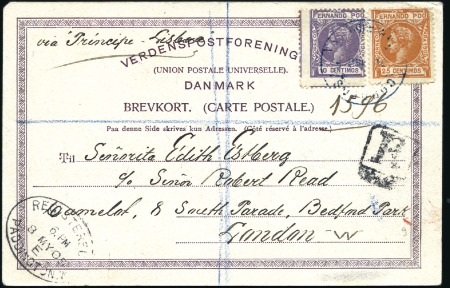 FERNANDO POO FERNANDO POO
10 CENTIMOS 25 CENTIMOS
via Principe - Lisboa
VERDENSPOSTFORENING
(UNION POSTALE UNIVERSELLE).
DANMARK
BREVKORT. (CARTE POSTALE.)
1596
Paa denne Side skrives kun Adressen. (Côté réservé à l'adresse.)
R
Til Señorita Edith Estberg
c/o Señor Robert Read
Camelot, 8 South Parade, Bedford Park
London W
REGISTERED
6 PM
8 MY 0
PADDINGTON